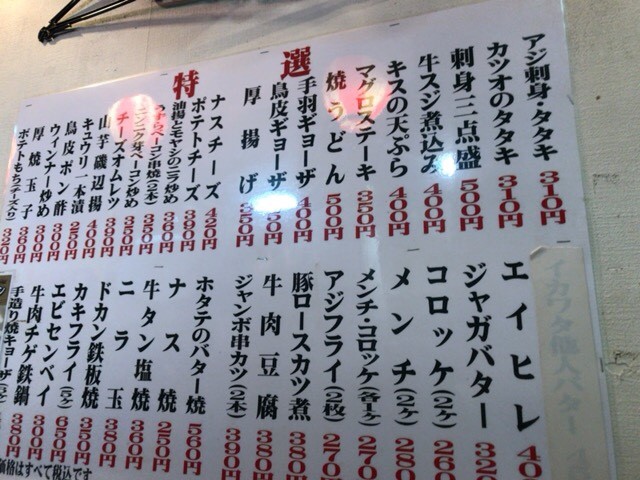 特選
アジ刺身・タタキ 310円
カツオのタタキ 310円
刺身三点盛 500円
牛スジ煮込み 400円
キスの天ぷら 400円
マグロステーキ 250円
焼うどん 500円
手羽ギョーザ 400円
鳥皮ギョーザ 50円
厚揚げ 250円
ナスチーズ 420円
ポテトチーズ 390円
油揚とモヤシのニラ炒め 360円
ベーコン串焼(2本) 350円
ニンニク芽ベーコン炒め 350円
チーズオムレツ 390円
山芋磯辺揚 400円
キュウリ一本漬 250円
鳥皮ポン酢 300円
ウィンナー炒め 300円
厚焼玉子 360円
ポテトもち(チーズ入り) 320円
エイヒレ 40
ジャガバター 32
コロッケ(2ヶ) 260
メンチ(2ヶ) 280
メンチ・コロッケ(各1ヶ) 270
アジフライ(2枚) 270
豚ロースカツ煮 380円
牛肉豆腐 380円
ジャンボ串カツ(2本) 390円
ホタテのバター焼 560円
ナス焼 250円
牛タン塩焼 360円
ニラ玉
ドカン鉄板焼 380円
カキフライ(5ケ) 650円
エビセンベイ 300円
牛肉チゲ鉄鍋
手造り焼ギョーザ(5ケ) 380円
価格はすべて税込です